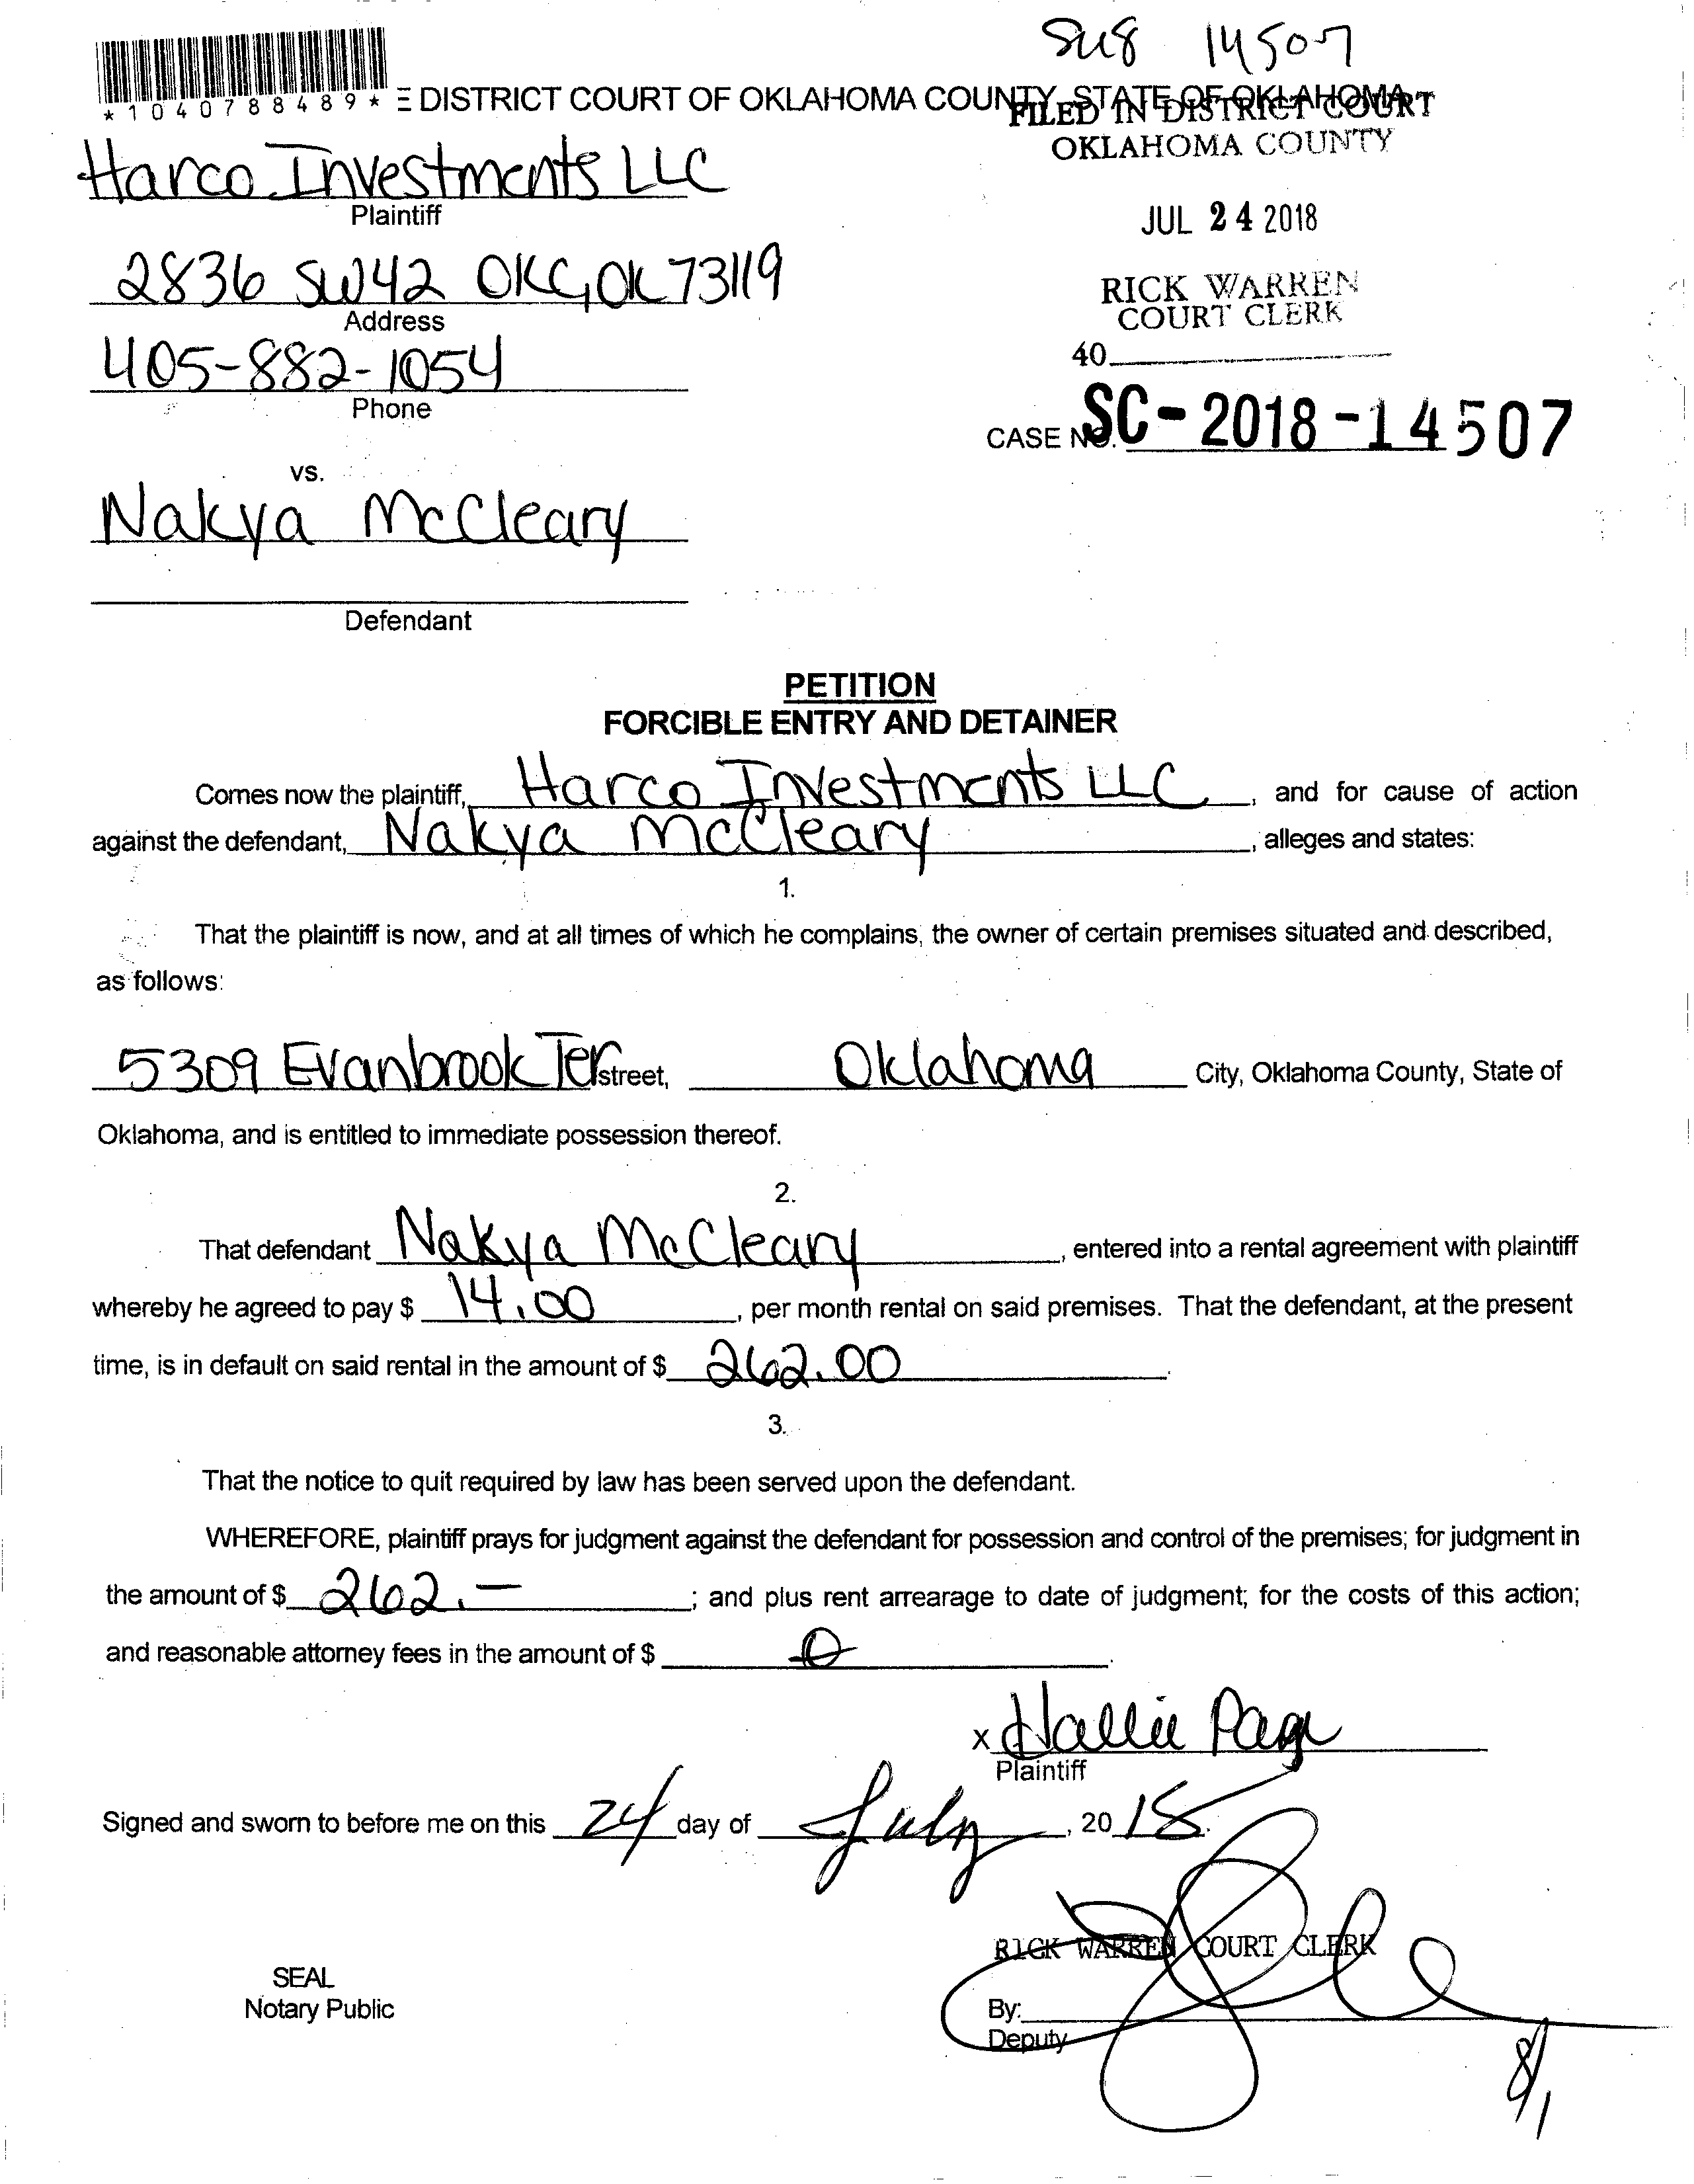 SM8 14507
*1040788489* E DISTRICT COURT OF OKLAHOMA COUNTY, STATE OF OKLAHOMA
FILED IN DISTRICT COURT
OKLAHOMA COUNTY
Harco Investments LLC
Plaintiff
JUL 24 2018
2836 SW42 OKC, OK 73119
Address
RICK WARREN
COURT CLERK
405-882-1054
Phone
40
CASE NO. SC-2018-14507
vs.
Nakya McCleary
Defendant
PETITION
FORCIBLE ENTRY AND DETAINER
Comes now the plaintiff, Harco Investments LLC, and for cause of action
against the defendant, Nakya McCleary, alleges and states:
1.
That the plaintiff is now, and at all times of which he complains, the owner of certain premises situated and described,
as follows:
5309 Evanbrook Ter street, Oklahoma City, Oklahoma County, State of
Oklahoma, and is entitled to immediate possession thereof.
2.
That defendant Nakya McCleary, entered into a rental agreement with plaintiff
whereby he agreed to pay $ 14.00, per month rental on said premises. That the defendant, at the present
time, is in default on said rental in the amount of $ 262.00.
3.
That the notice to quit required by law has been served upon the defendant.
WHEREFORE, plaintiff prays for judgment against the defendant for possession and control of the premises; for judgment in
the amount of $ 262.-; and plus rent arrearage to date of judgment; for the costs of this action;
and reasonable attorney fees in the amount of $ 0.
x Hallie Page
Plaintiff
Signed and sworn to before me on this 24 day of July, 2018.
RICK WARREN COURT CLERK
SEAL
Notary Public
By:
Deputy
8/1